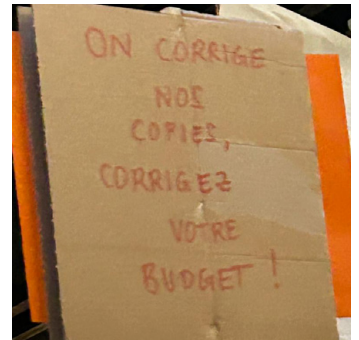 ON CORRIGE
NOS
COPIES,
CORRIGEZ
VOTRE
BUDGET !